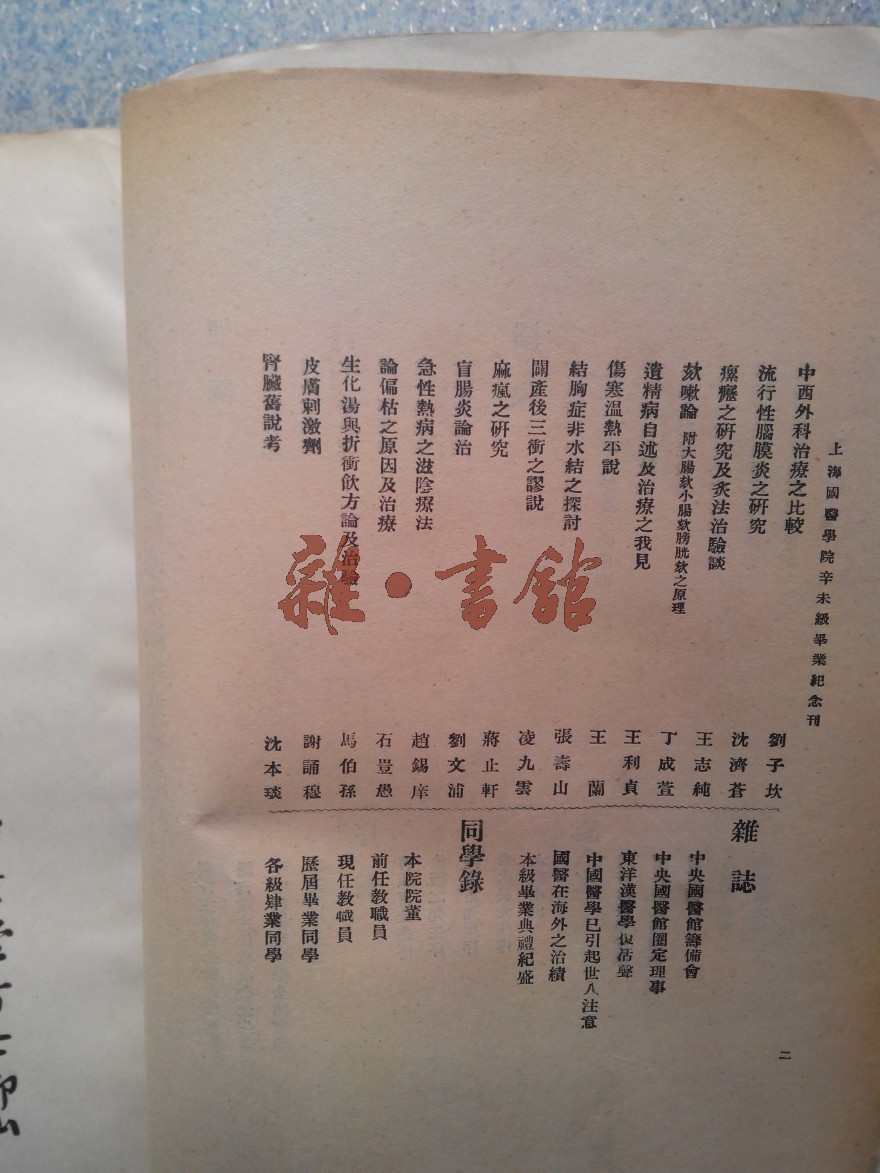 上海國醫學院辛未級畢業紀念刊
中西外科治療之比較 劉子坎
流行性腦膜炎之研究 沈濟蒼
瘰癧之研究及灸法治驗談 王志純
欬嗽論 附大腸欬小腸欬膀胱欬之原理 丁成萱
遺精病自述及治療之我見 王利貞
傷寒溫熱平說 王蘭
結胸症非水結之探討 張壽山
闢產後三衝之謬說 凌九雲
麻瘋之研究 蔣止軒
盲腸炎論治 劉文浦
急性熱病之滋陰療法 趙錫庠
論偏枯之原因及治療 石豈愚
生化湯與折衝飲方論及治驗 馬伯孫
皮膚刺激劑 謝誦穆
腎臟舊說考 沈本琰
雜誌
中央國醫館籌備會
中央國醫館圈定理事
東洋漢醫學復活聲
中國醫學已引起世人注意
國醫在海外之治績
本級畢業典禮紀盛
同學錄
本院院董
前任教職員
現任教職員
歷屆畢業同學
各級肄業同學
二
雜·書館